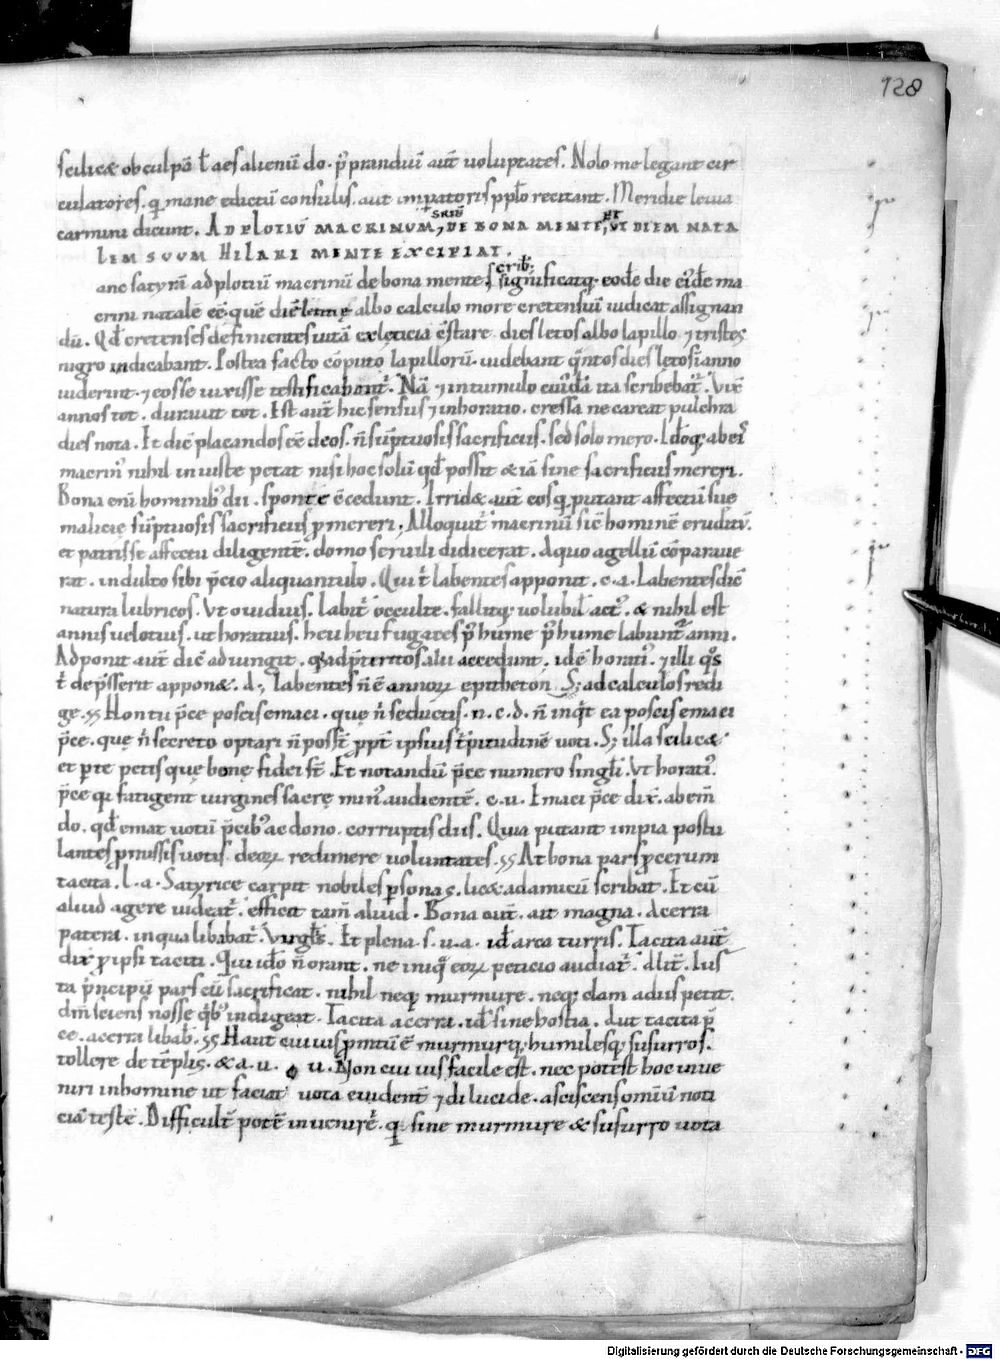 128
scilicet ob culpā ł aes alienū do. p̄ prandiū aut̄ uoluptates. Nolo me legant cir
culatores. qi mane edictū consulis. aut imꝑatoris pplo recitant. Meridie leuia
carmina dicunt. AD PLOTIŪ MACRINUM, DE BONA MENTE, UT DIEM NATA
SRIB̄ ET
LEM SUUM HILARI MENTE EXCIPIAT.
scrib;
anc satyrā ad plotiū macrinū de bona mente, significatq; eodē die eiꝰdē ma
crini natalē eē quē diē albo calculo more cretensiū iudicat assignan
dū. Qđ cretenses definientes uitā ex lęticia c̄stare. dies lętos albo lapillo ⁊ tristes
nigro indicabant. Postea facto cōputo lapillorū. uidebant q̄ntos dies lętos ī anno
uiderint. ⁊ eos se uixisse testificabant̄. Nā ⁊ in tumulo cuiꝰdā ita scribebat̄. Vix̄
annos tot. durauit tot. Est aut̄ hic sensus ⁊ in horatio. cressa ne careat pulchra
dies nota. Et diē placandos eē deos. n̄ sūptuosis sacrificiis. sed solo mero. Idoq; abeī
macrinꝰ nihil iniuste petat nisi hoc solū qđ possit & iā sine sacrificiis mereri.
Bona enī hominibꝰ dii. sponte c̄cedunt. Irridet aut̄ eos qi putant affectū sue
malicię sūptuosis sacrificiis ꝓmereri. Alloquit̄ macrinū sic̄ hominē eruditū.
et patrisse affectu diligentē. domo seruili didicerat. a quo agellū cōparaue
rat. indulto sibi p̄cio aliquantulo. Qui t̄ labentes apponit. c.a. Labentes dic̄
natura lubricos. Vt ouidius. labit̄ occulte. fallitq; uolubil̄ aetꝰ. & nihil est
annis uelotius. ut horatius. heu heu fugaces p̄ hume p̄ hume labunt̄ anni.
Adponit aut̄ dic̄ adiungit. q; ad p̄teritos alii accedunt. idē horatiꝰ. ⁊ illi q̄s
t̄ dēpserit apponet. d; labentes n̄ ē annoꝝ epitheton S; ad calculos redi
ge. Hon tu p̄ce poscis emaci. quę n̄ seductis. n.c.d. n̄ inq̄t ea poscis emaci
p̄ce. quę n̄ secreto optari n̄ poss̄t ꝓpt̄ ipsius t̄pitudinē uoti. S; illa scilicet
et ꝑte petis que bonę fidei st̄. Et notandū p̄ce numero singl̄i. Vt horatiꝰ.
p̄ce qi fatigent uirgines sacrę minꝰ audientē. c.u. Emaci p̄ce dix̄. ab em̄
do. qđ emat uotū p̄cibꝰ ac dono. corruptis diis. Quia putant impia postu
lantes ꝓmissis uotis deoꝝ redimere uoluntates. At bona pars ꝓcerum
tacita. l.a. Satyrice carpit nobiles ꝑsonas. licet ad amicū scribat. Et cū
aliud agere uideat̄. efficit tam̄ aliud. Bona aut̄. ait magna. Acerra
patera. in qua libabat̄. Virgl̄s. Et plena. s.u.a. idē arca turris. Tacita aut̄
dix̄ ꝓ ipsi taciti. Qui ido n̄ orant. ne iniq̄ eoꝝ peticio audiat̄. Alit̄. Ius
ta p̄ncipū pars cū sacrificat. nihil neq; murmure. neq; clam a diis petit.
dm̄ sciens nosse q̄bꝰ indigeat. Tacita acerra. idē sine hostia. dut tacita p̄
ce. acerra libab̄. Haut cuiuis ꝓmtū ē murmurq; humilesq; susurros.
tollere de tēplis. & a.u. u. Non cui uis facile est. nec potest hoc inue
niri in homine ut faciat uota euident̄ ⁊ dilucide. asciscens omīū noti
ciā teste. Difficult̄ potē inuenire. qi sine murmure & susurro uota
Digitalisierung gefördert durch die Deutsche Forschungsgemeinschaft - DFG